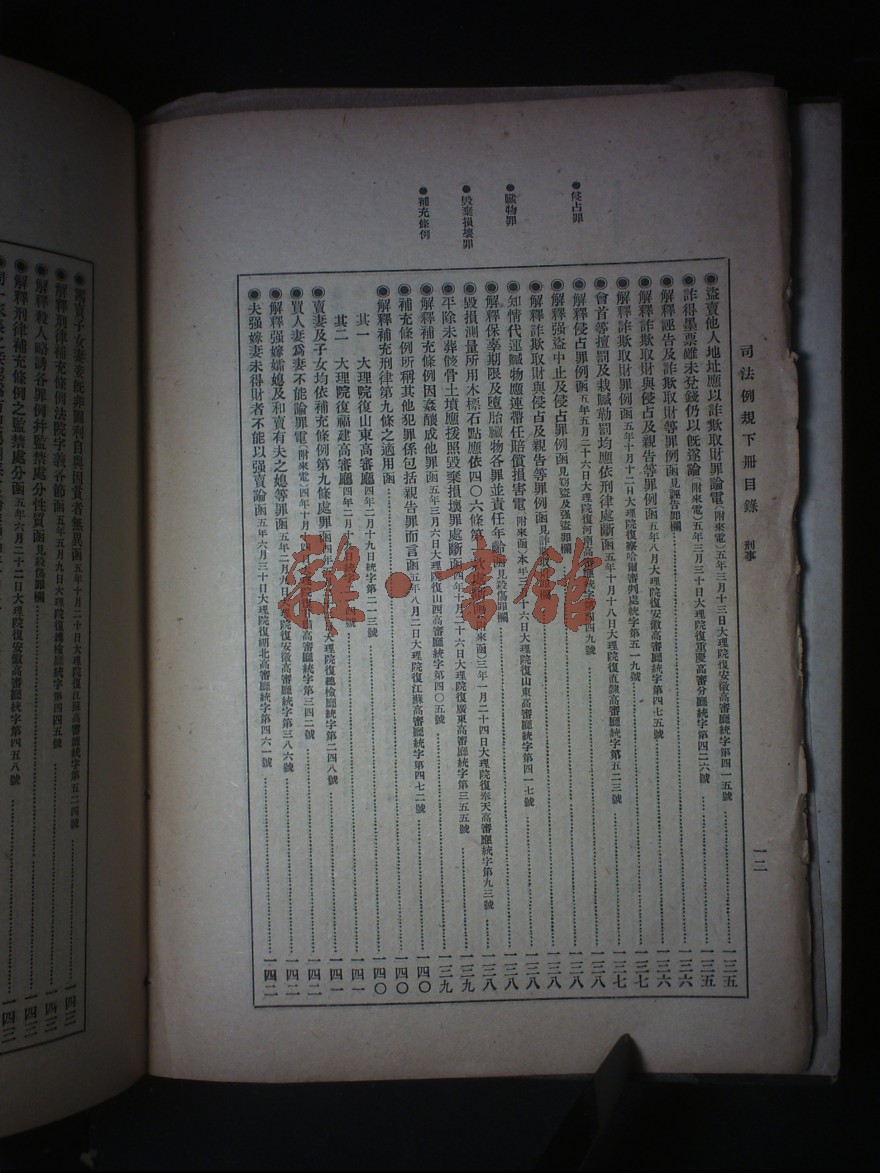 司法例規下册目錄 刑事
一二
●侵占罪
●贓物罪
●毀棄損壞罪
●補充條例
◉盜賣他人地址應以詐欺取財罪論電(附來電)五年三月十三日大理院復安徽高審廳統字第四一五號……一三五
◉詐得墨票雖未兌錢仍以既遂論(附來電)五年三月三十日大理院復重慶高審分廳統字第四二六號……一三五
◉解釋誣告及詐欺取財等罪例函見誣告罪欄……一三六
◉解釋詐欺取財與侵占及親告等罪例函五年八月大理院復安徽高審廳統字第四七五號……一三六
◉解釋詐欺取財罪例函五年十月十二日大理院復察哈爾審判處統字第五一九號……一三七
◉會首等擅罰及栽贓勒罰均應依刑律處斷函五年十月十八日大理院復直隷高審廳統字第五二三號……一三七
◉解釋侵占罪例函五年五月二十六日大理院復河南高審廳統字第四四九號……一三八
◉解釋强盜中止及侵占罪例函見竊盜及强盜罪欄……一三八
◉解釋詐欺取財與侵占及親告等罪例函見詐欺……一三八
◉知情代運贓物應連帶任賠償損害電(附來函)本年三月十六日大理院復山東高審廳統字第四一七號……一三八
◉解釋保辜期限及墮胎贓物各罪並責任年齡函見殺傷罪欄……一三八
◉毀損測量所用木標石點應依四〇六條第(附來函)三年一月二十四日大理院復奉天高審廳統字第九三號……一三八
◉平除未葬骸骨土墳應援照毀棄損壞罪處斷函四年十月二十六日大理院復廣東高審廳統字第三五五號……一三九
◉解釋補充條例因姦釀成他罪函五年三月六日大理院復山西高審廳統字第四〇五號……一三九
◉補充條例所稱其他犯罪係包括親告罪而言函五年八月二日大理院復江蘇高審廳統字第四七二號……一四〇
◉解釋補充刑律第九條之適用函……一四〇
其一 大理院復山東高審廳四年二月十九日統字第二一三號……一四〇
其二 大理院復福建高審廳四年二月十號……一四一
◉賣妻及子女均依補充條例第九條處罪函四年大理院復總檢廳統字第二四八號……一四一
◉買人妻爲妻不能論罪電(附來電)四年十月高審廳統字第三四二號……一四二
◉解釋强嫁孀媳及和賣有夫之媳等罪函五年二月九日大理院復安徽高審廳統字第三八六號……一四二
◉夫强嫁妻未得財者不能以强賣論函五年六月三十日大理院復湖北高審廳統字第四六一號……一四二
賣子女妻妾旣非圖利自與因貧者無異函五年十月二十日大理院復江蘇高審廳統字第五二四號……一四三
◉解釋刑律補充條例法院字義各節函五年五月九日大理院復總檢廳統字第四四五號……一四三
◉解釋殺人略誘各罪例并監禁處分性質函見殺傷罪欄……一四三
◉解釋刑律補充條例之監禁處分函五年六月二十二日大理院復安徽高審廳統字第四五八號……一四三
雜·書館